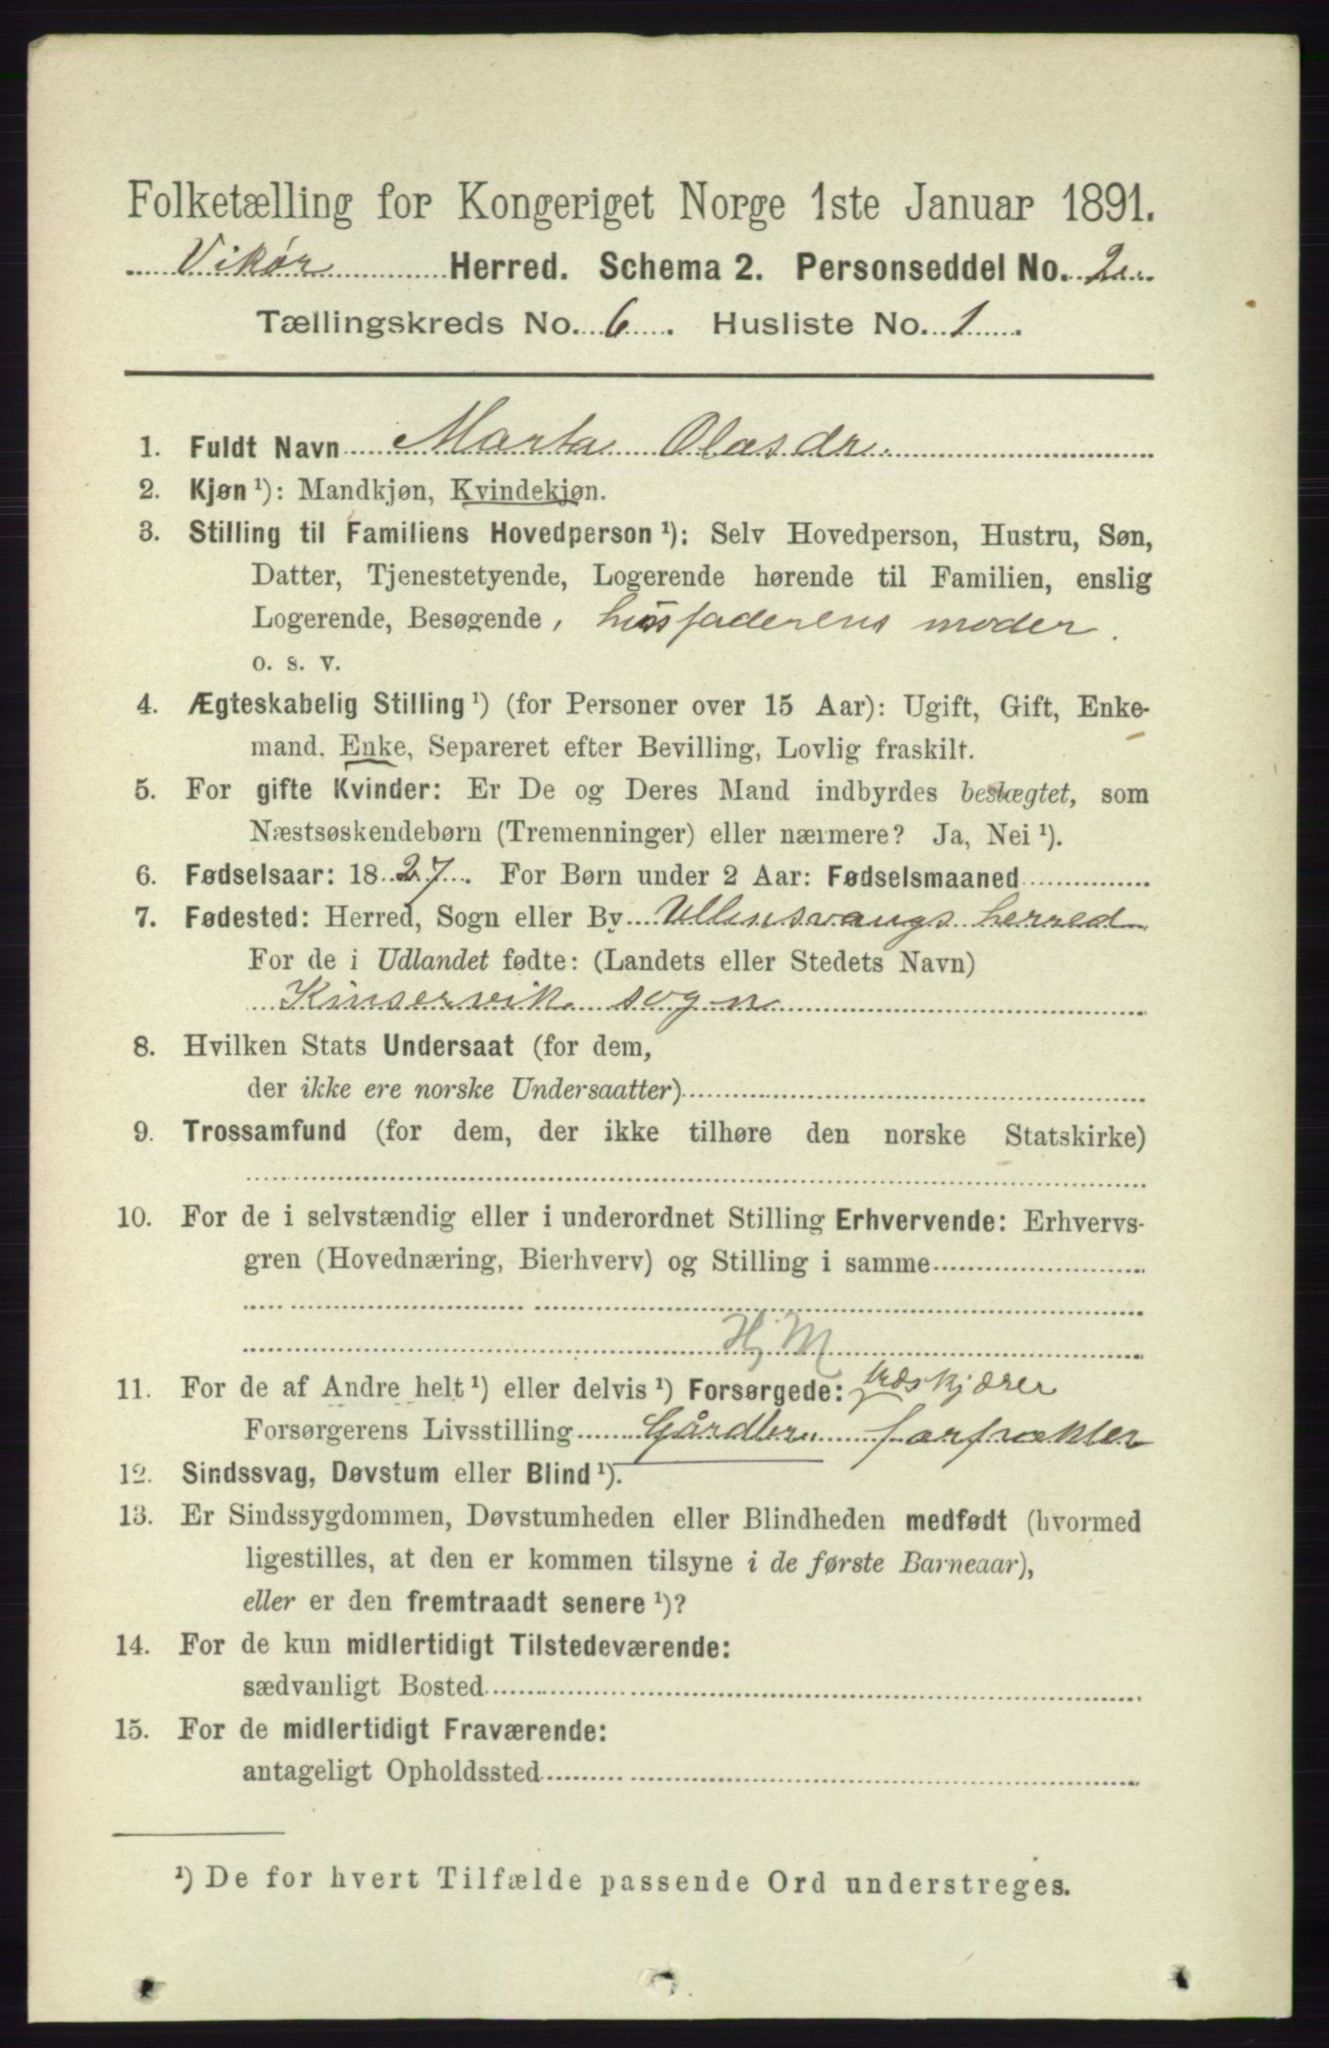 Folketælling for Kongeriget Norge 1ste Januar 1891.
Vikør Herred. Schema 2. Personseddel No. 2
Tællingskreds No. 6. Husliste No. 1.
1. Fuldt Navn Marta Olasdr.
2. Kjøn ¹): Mandkjøn, Kvindekjøn.
3. Stilling til Familiens Hovedperson ¹): Selv Hovedperson, Hustru, Søn,
Datter, Tjenestetyende, Logerende hørende til Familien, enslig
Logerende, Besøgende, husfaderens moder.
o. s. v.
4. Ægteskabelig Stilling ¹) (for Personer over 15 Aar): Ugift, Gift, Enke-
mand, Enke, Separeret efter Bevilling, Lovlig fraskilt.
5. For gifte Kvinder: Er De og Deres Mand indbyrdes beslægtet, som
Næstsøskendebørn (Tremenninger) eller nærmere? Ja, Nei ¹).
6. Fødselsaar: 1827. For Børn under 2 Aar: Fødselsmaaned
7. Fødested: Herred, Sogn eller By Ullensvangs herred
For de i Udlandet fødte: (Landets eller Stedets Navn)
Kinservik sogn
8. Hvilken Stats Undersaat (for dem,
der ikke ere norske Undersaatter)
9. Trossamfund (for dem, der ikke tilhøre den norske Statskirke)
10. For de i selvstændig eller i underordnet Stilling Erhvervende: Erhvervs-
gren (Hovednæring, Bierhverv) og Stilling i samme
Hj M
11. For de af Andre helt ¹) eller delvis ¹) Forsørgede: træskjærer
Forsørgerens Livsstilling Gårdbr.
12. Sindssvag, Døvstum eller Blind ¹).
13. Er Sindssygdommen, Døvstumheden eller Blindheden medfødt (hvormed
ligestilles, at den er kommen tilsyne i de første Barneaar),
eller er den fremtraadt senere ¹)?
14. For de kun midlertidigt Tilstedeværende:
sædvanligt Bosted
15. For de midlertidigt Fraværende:
antageligt Opholdssted
¹) De for hvert Tilfælde passende Ord understreges.